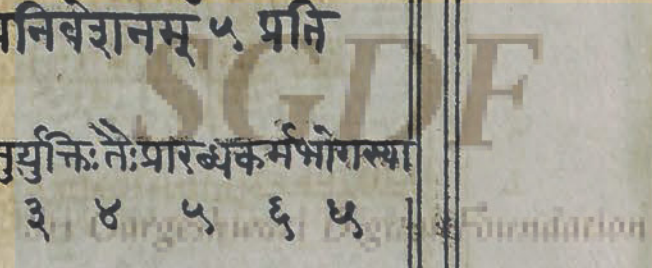 पनिवेशनम् ५ प्रति
तुर्युक्तिःतैःप्रारब्धकर्मभोगस्या
३ ४ ५ ६ ५
SGDF
Sri Gargeshwari Digital Foundation